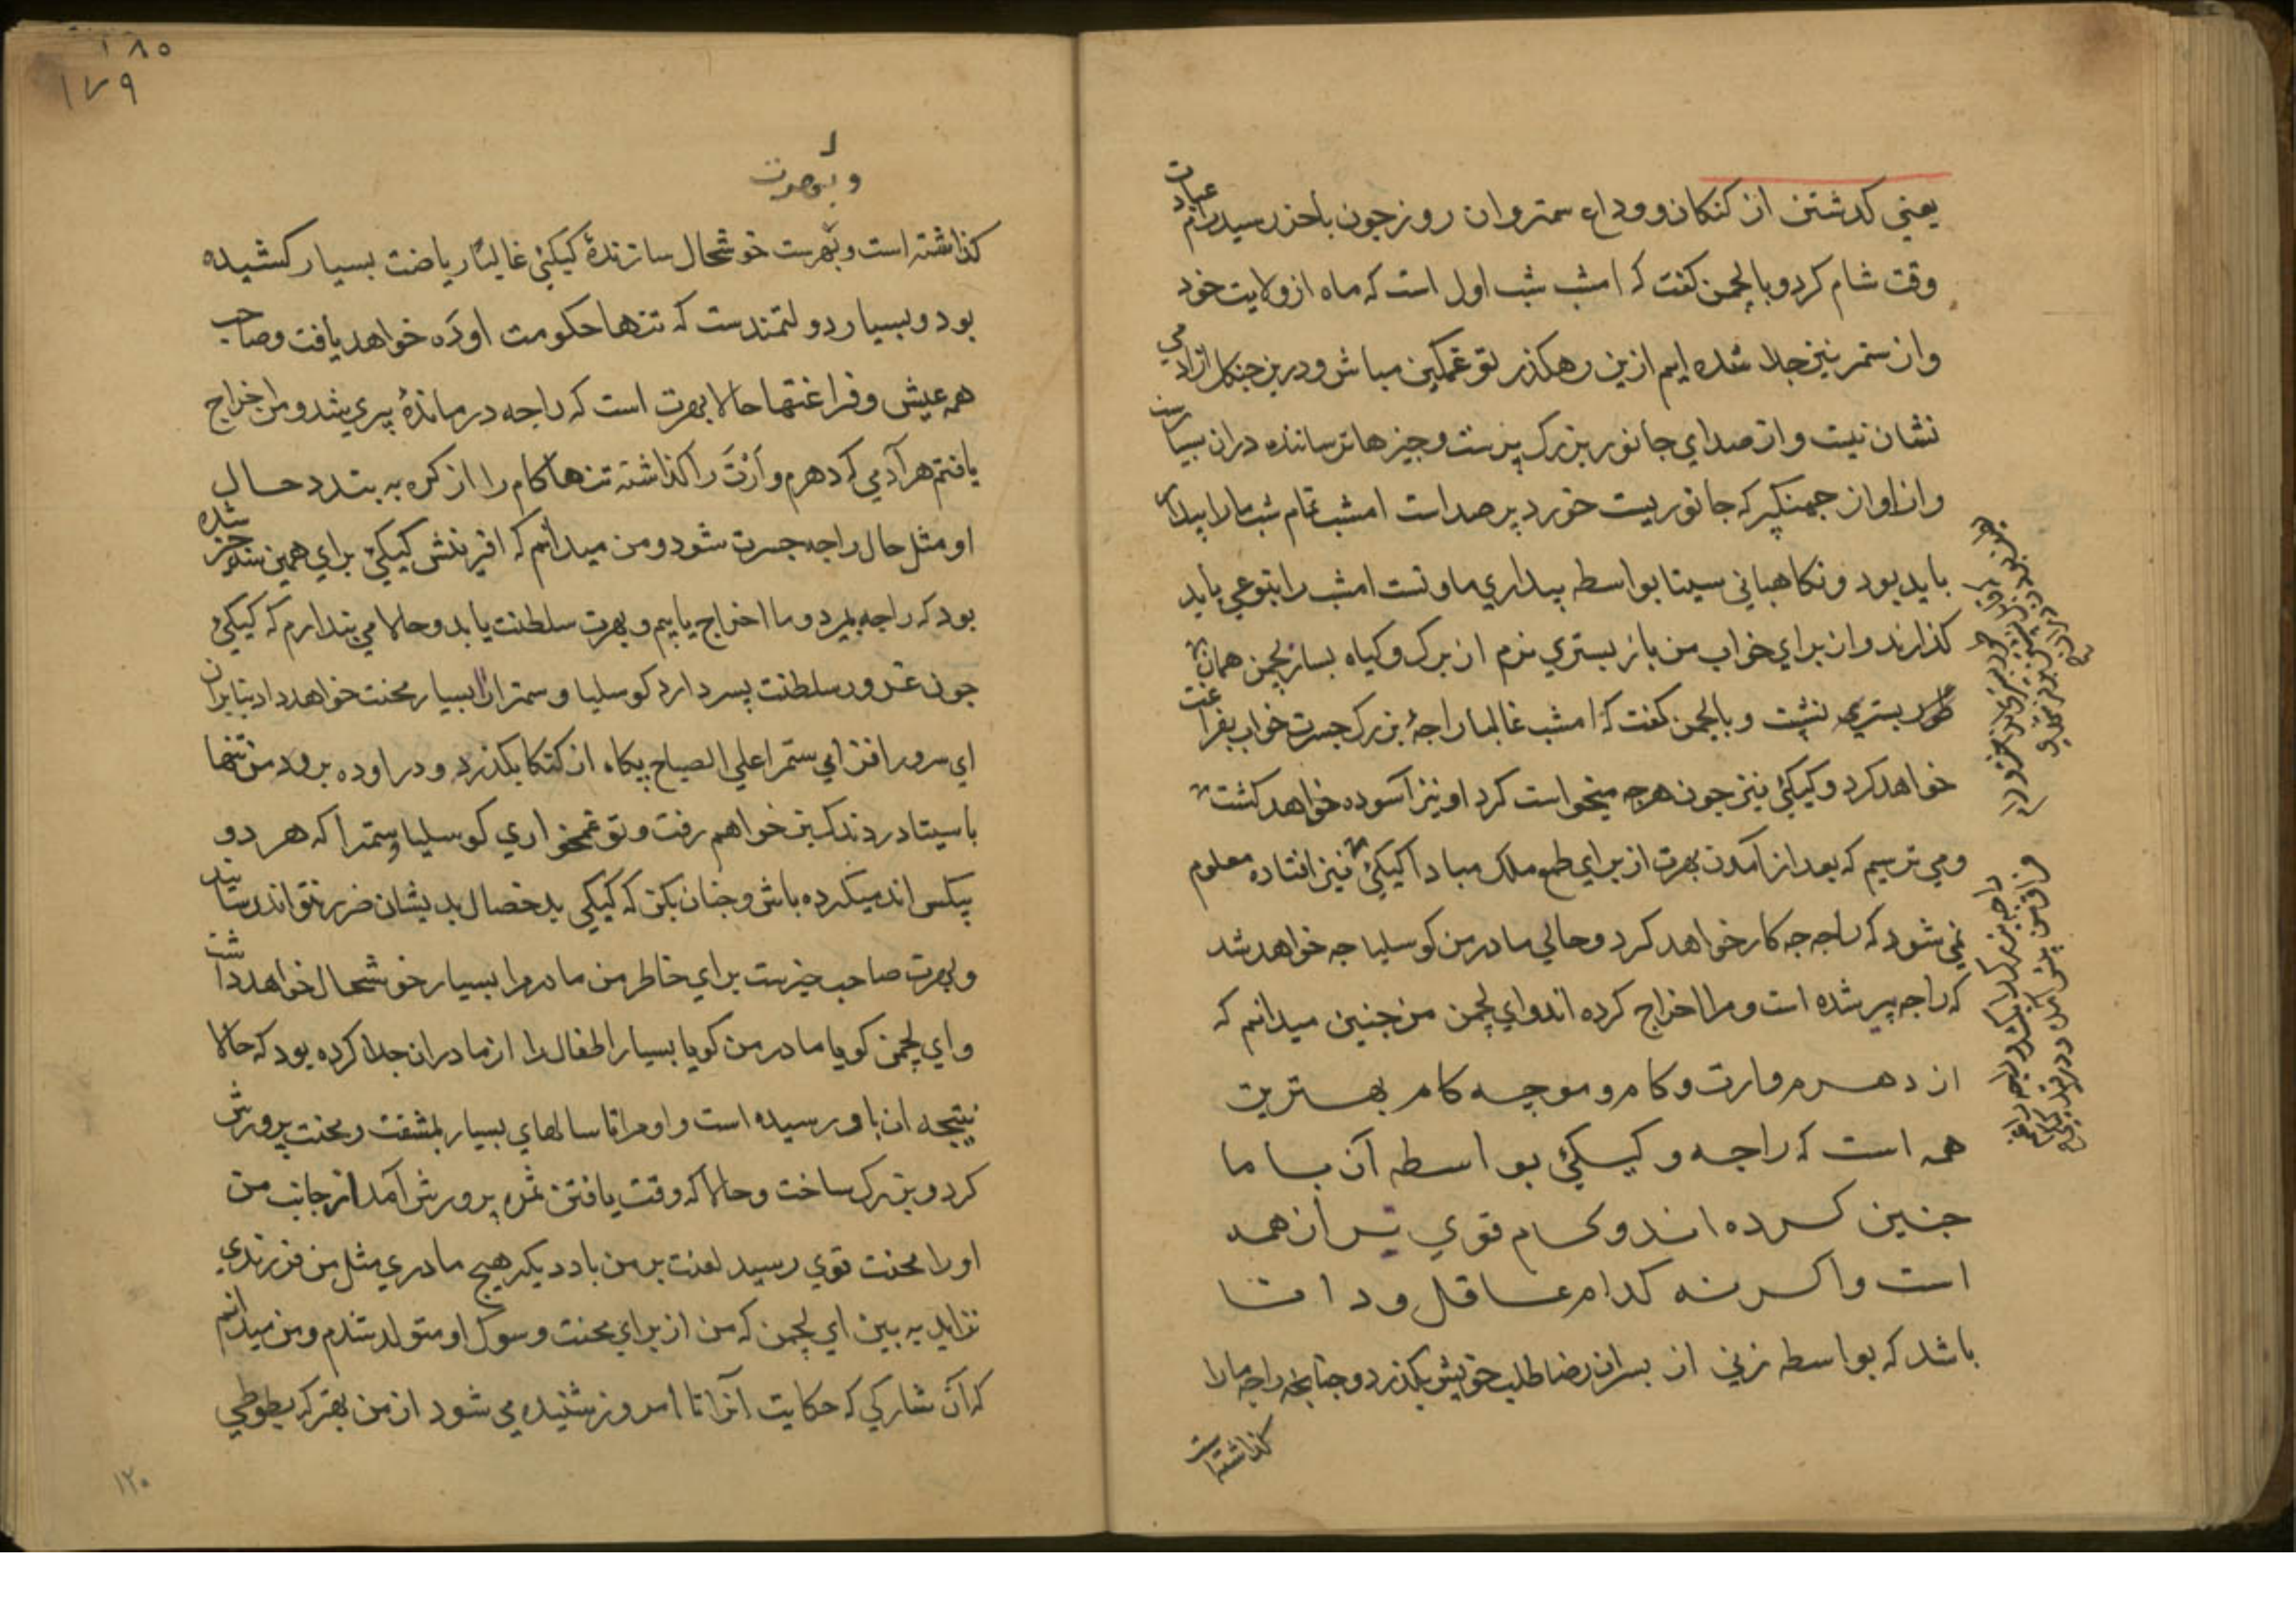 یعنی کدشتن از کنکان و وداع سمتر و ان روز جون باخر رسید رام عبادت
وقت شام کرد و بالچمن کفت که امشب شب اول است که ماه از ولایت خود
و از ستمر نیز جلا شده ایم ازین رهکذر تو غمکین مباش و درین جنکل از ادمی
نشان نیست و از صدای جانور بزرک پرست و چیزها ترساننده دران بسیارست
و از اواز جهینکیر که جانوریست خورد پر صداست امشب تمام شب ما را بیدار
باید بود و نکاهبانی سیتا بواسطه بیداری ما و تست امشب را بنوعی باید
کذارند و از برای خواب من باز بستری نرم از برک و کیاه بساز لچمن همان
طور بستری و بالچمن کفت که امشب غالبا راجه بزرک جسرت خواب بفراغت
خواهد کرد و کیکئ نیز جون هرچه میخواست کرد او نیز آسوده خواهد کشت
و می ترسیم که بعد از آمدن بهرت از برای طمع ملک مبادا کیکئ نیز افتاده معلوم
نمی شود که راجه چه کار خواهد کرد و حالی مادر من کوسلیا چه خواهد شد
که راجه پیر شده است و مرا اخراج کرده اند و ای لچمن من چنین میدانم که
از دهرم و ارت و کام و موچه کام بهترین
همه است که راجه و کیکئ بواسطه آن با ما
چنین کرده اند و کام قوی تر از همه
است و اکر نه کدام عاقل و دانا
باشد که بواسطه زنی از پسران رضا طلب خویش بکذرد و چنانچه راجه ما را
کذاشته است
۱۸۵
۱۷۹
و بهرت
کذاشته است و بهرت خوشحال سازندهٔ کیکئ غالبًا ریاضت بسیار کشیده
بود و بسیار دولتمندست که تنها حکومت اوده خواهد یافت و صاحب
همه عیش و فراغتها حالا بهرت است که راجه درماندهٔ پیری شد و من اخراج
یافتم هر آدمی که دهرم و ارت را کذاشته تنها کام را از کره به بندد حال
او مثل حال راجه جسرت شود و من میدانم که افرینش کیکئ برای همین شده
بود که راجه بمیرد و ما اخراج یابیم و بهرت سلطنت یابد و حالا می پندارم که کیکئ
جون غرور سلطنت پسر دارد کوسلیا و سمترا را بسیار محنت خواهد داد بنابران
ای سرور افزای ستمرا علی الصباح پکاه از کنکا بکذرد و در اوده برود من تنها
با سیتا در دندکبن خواهم رفت و تو غمخواری کوسلیا و ستمرا که هر دو
بیکس اند میکرده باش و چنان بکن که کیکی بد خصال بدیشان ضرر نتواند رسانید
و بهرت صاحب خیرست برای خاطر من مادر مرا بسیار خوشحال خواهد داشت
و ای لچمن کویا مادر من کویا بسیار اطفال را از مادران جدا کرده بود که حالا
نتیجه ان باو رسیده است و او مرا تا سالهای بسیار بمشقت و محنت پرورش
کرد و بزرک ساخت و حالا که وقت یافتن ثمره پرورش آمد از جانب من
او را محنت قوی رسید لعنت بر من باد دیکر هیچ مادری مثل من فرزندی
نزاید به بین ای لچمن که من از برای محنت و سوک او متولد شدم و من میدانم
که آن شارکی که حکایت آنرا تا امروز شنیده می شود از من بهتر که بطوطی
۱۲۰